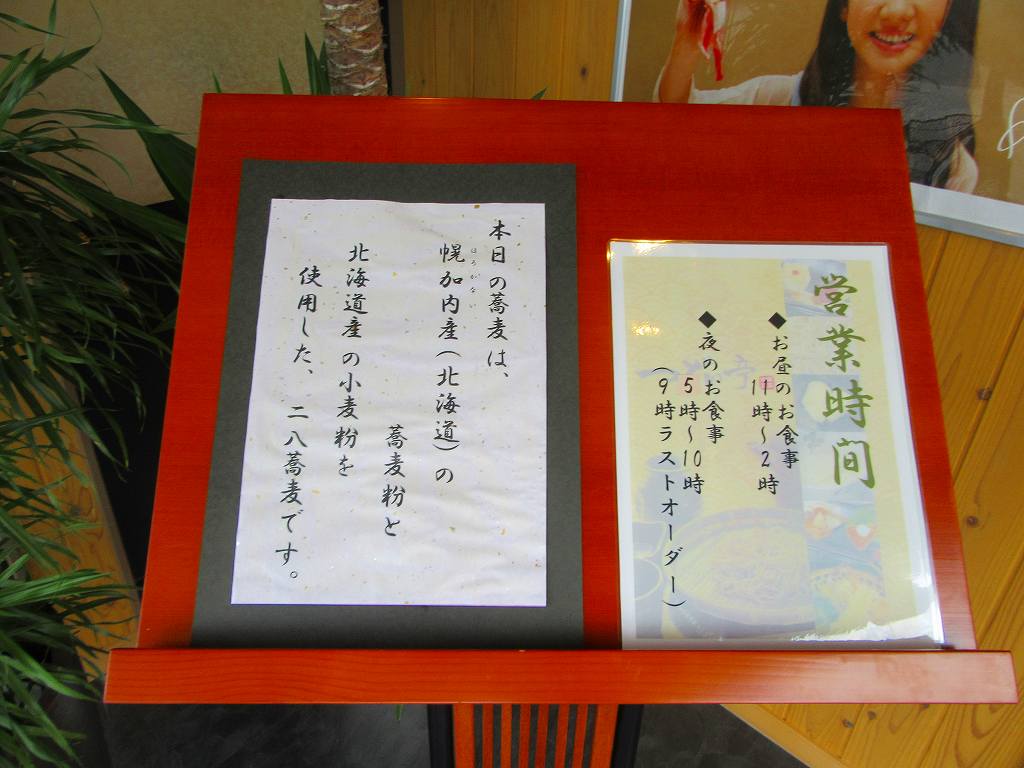 本日の蕎麦は、
幌加内産(北海道)の
ほろかない
蕎麦粉と
北海道産の小麦粉を
使用した、二八蕎麦です。
営業時間
◆お昼のお食事
11時～2時
◆夜のお食事
5時～10時
(9時ラストオーダー)